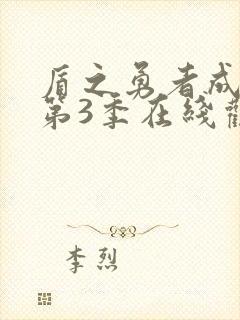 盾之勇者成
第3季在綫
李烈